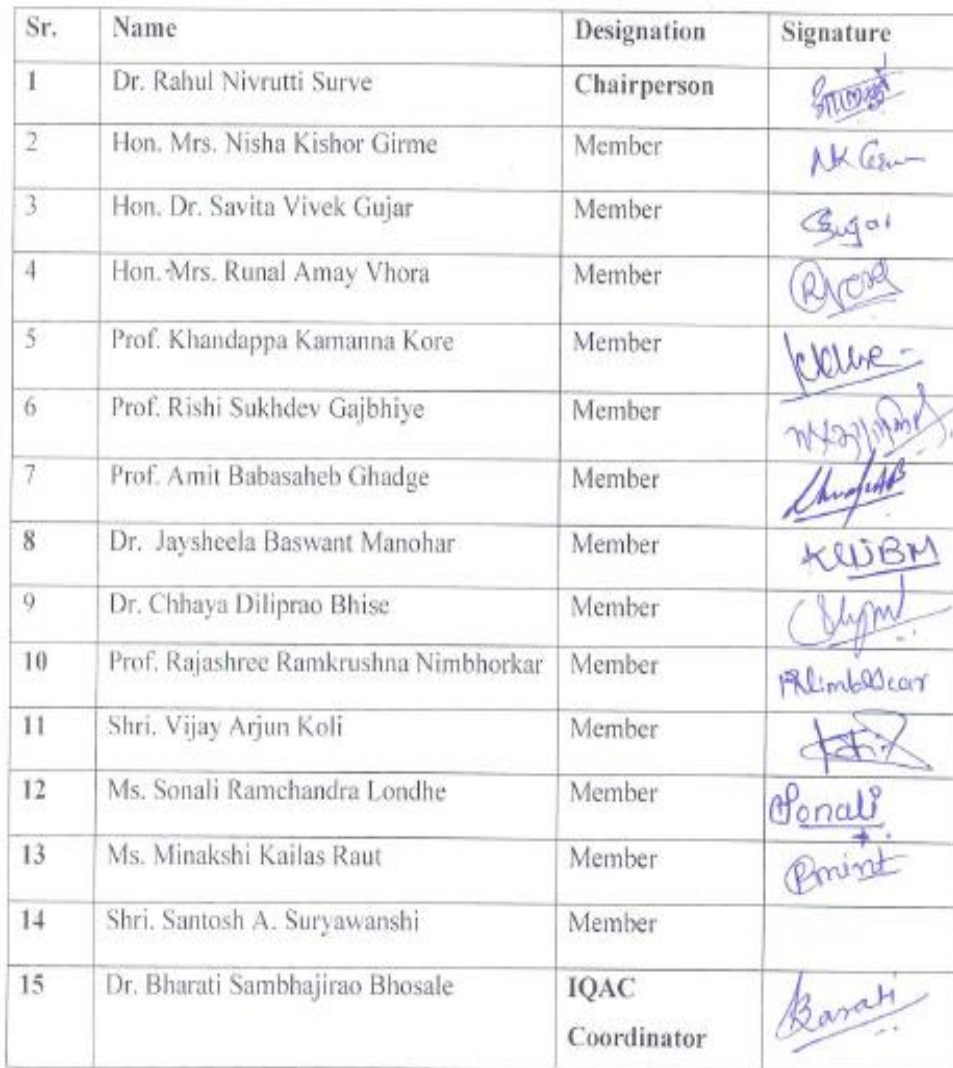 Sr. Name Designation Signature
1 Dr. Rahul Nivrutti Surve Chairperson
2 Hon. Mrs. Nisha Kishor Girme Member
3 Hon. Dr. Savita Vivek Gujar Member Gujar
4 Hon. Mrs. Runal Amay Vhora Member
5 Prof. Khandappa Kamanna Kore Member
6 Prof. Rishi Sukhdev Gajbhiye Member
7 Prof. Amit Babasaheb Ghadge Member
8 Dr. Jaysheela Baswant Manohar Member
9 Dr. Chhaya Diliprao Bhise Member
10 Prof. Rajashree Ramkrushna Nimbhorkar Member
11 Shri. Vijay Arjun Koli Member
12 Ms. Sonali Ramchandra Londhe Member Sonali
13 Ms. Minakshi Kailas Raut Member
14 Shri. Santosh A. Suryawanshi Member
15 Dr. Bharati Sambhajirao Bhosale IQAC
Coordinator